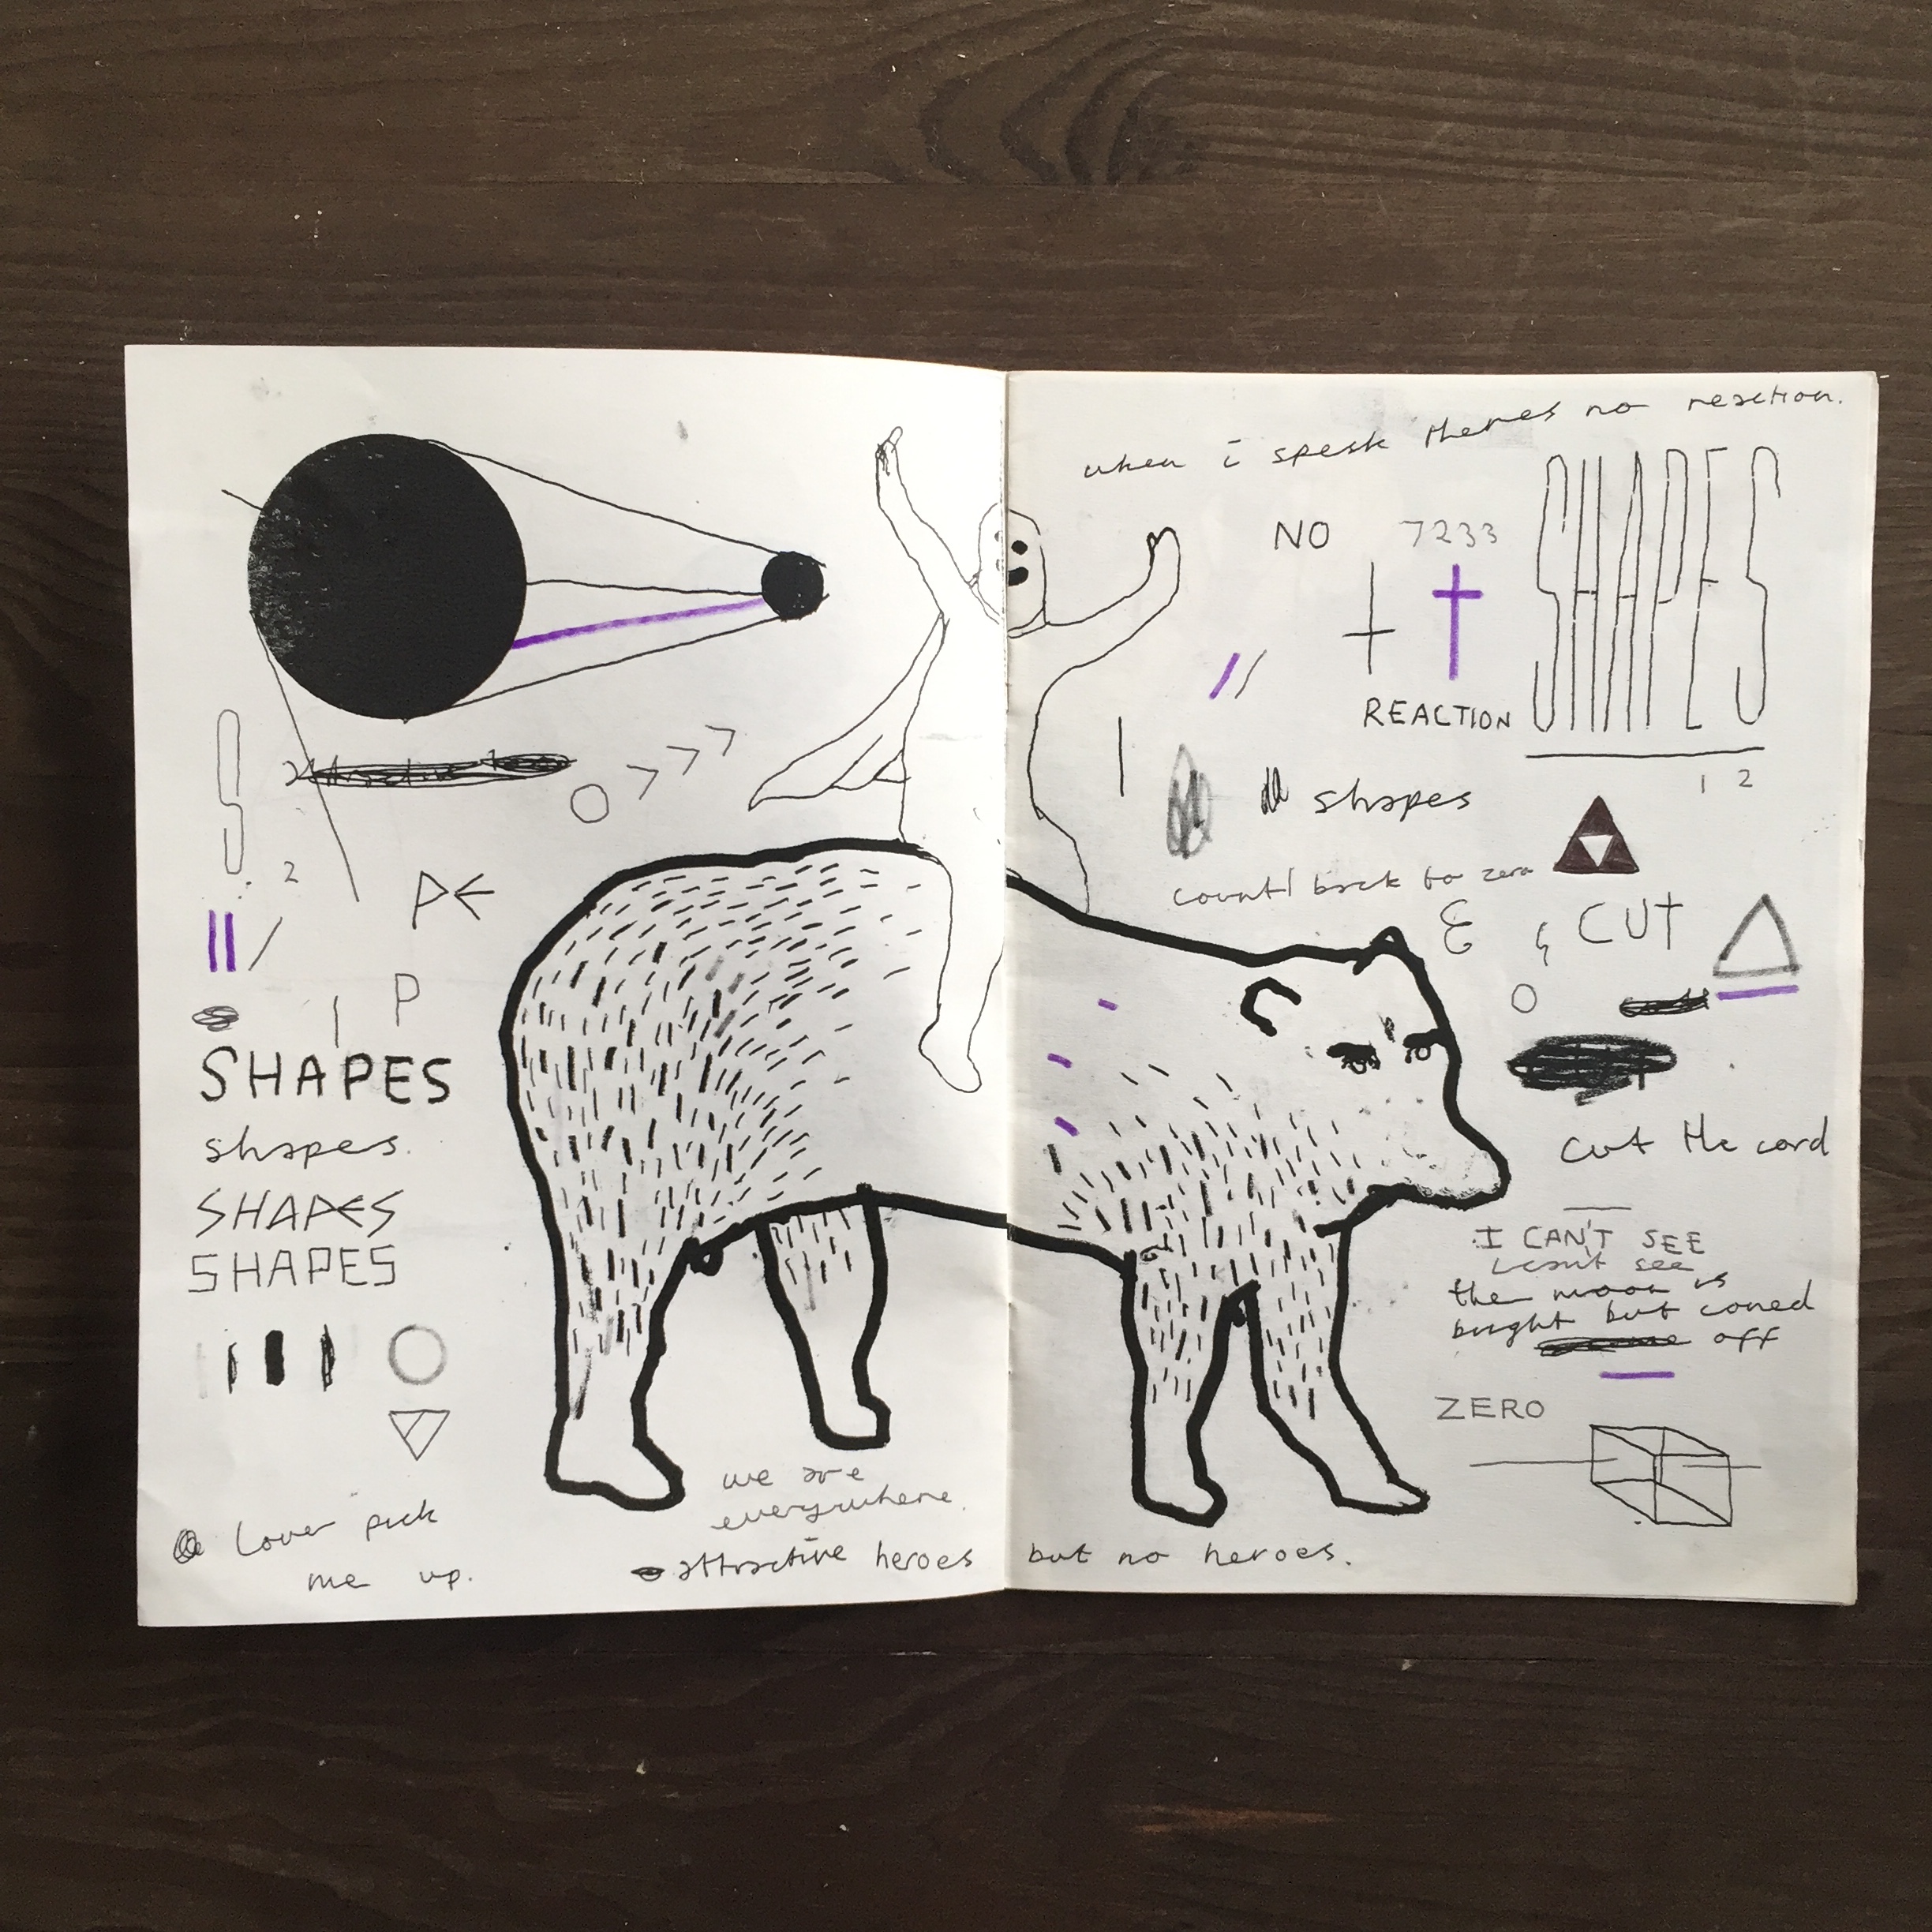 S
2
PE
P
SHAPES
shapes.
SHAPES
SHAPES
Lover pick
me up.
we are
everywhere.
attractive heroes but no heroes.
when i speak theres no reaction.
NO 7233
SHAPES
REACTION
1 2
shapes
count back to zero
& CUT
cut the cord
I CAN'T SEE
i cant see
the moon is
bright but coned
off
ZERO